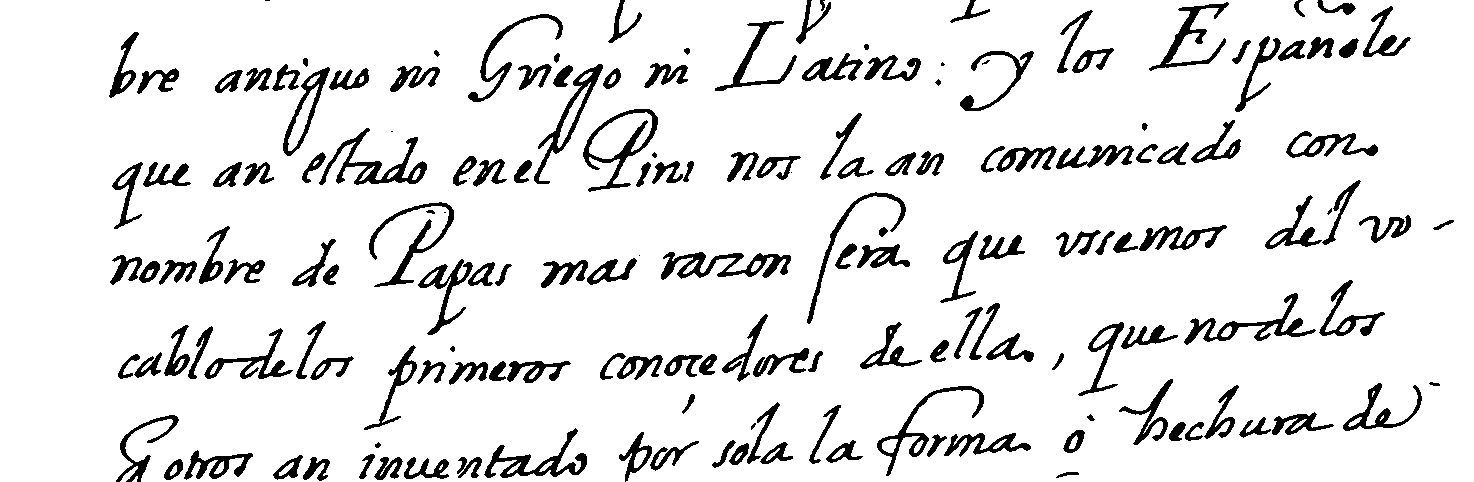 bre antiguo ni Griego ni Latino: y los Españoles
que an estado en el Piru nos la an comunicado con
nombre de Papas mas razon sera que vssemos del vo-
cablo de los primeros conocedores de ella, que no de los
q otros an inventado por sola la forma ó hechura de